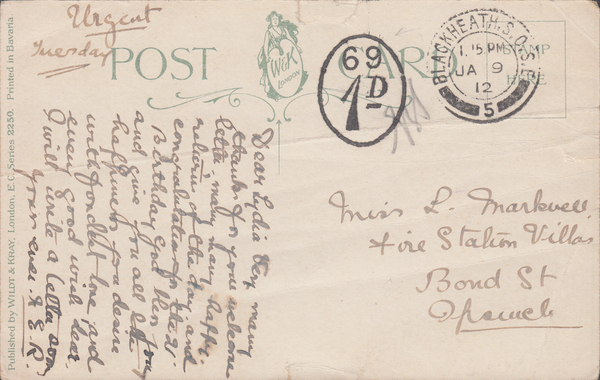 Urgent
Tuesday
POST CARD
W&K
LONDON
69
1D
BLACKHEATH. S.O. S.E.
1.15 PM
JA 9
12
5
STAMP
HERE
Published by WILDT & KRAY, London, E.C. Series 2250. Printed in Bavaria.
Dear Lydia Very many
thanks for your welcome
letter. many many happy
returns of the day and
congratulations for the 21
Birthday God bless you
and give you all the
happiness you desire
with fondest love and
every good wish dear
I will write a letter soon
yours ever
Miss L. Markwell
Fire Station Villas
Bond St
Ipswich